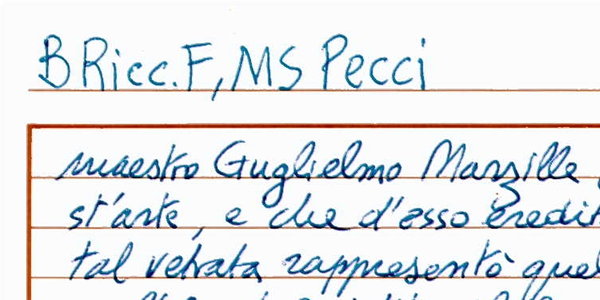 B Ricc.F, MS Pecci
maestro Guglielmo Marzille
st'arte, e che d'esso eredit
tal vetrata rappresentò quel